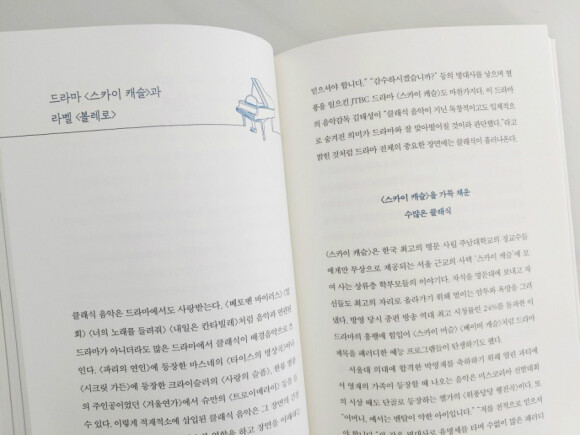 드라마 〈스카이 캐슬〉과
라벨 〈볼레로〉
클래식 음악은 드라마에서도 사랑받는다. 〈베토벤 바이러스〉 〈밀
회〉 〈너의 노래를 들려줘〉 〈내일은 칸타빌레〉처럼 음악과 관련된
드라마가 아니더라도 많은 드라마에서 클래식이 배경음악으로 쓰
인다. 〈파리의 연인〉에 등장한 마스네의 〈타이스의 명상곡〉이나
〈시크릿 가든〉에 등장한 크라이슬러의 〈사랑의 슬픔〉, 한류 열풍
의 주인공이었던 〈겨울연가〉에서 슈만의 〈트로이메라이〉 등을 들
수 있다. 이렇게 적재적소에 삽입된 클래식 음악은 그 장면의 긴장
역할을 하고 장면을 이해하는
믿으셔야 합니다.” “감수하시겠습니까?” 등의 명대사를 낳으며 열
풍을 일으킨 JTBC 드라마 〈스카이 캐슬〉도 마찬가지다. 이 드라마
의 음악감독 김태성이 “클래식 음악이 지닌 독창적이고도 입체적으
로 숨겨진 의미가 드라마와 잘 맞아떨어질 것이라 판단했다.”라고
밝힌 것처럼 드라마 전체의 중요한 장면에는 클래식이 흘러나온다.
〈스카이 캐슬〉을 가득 채운
수많은 클래식
〈스카이 캐슬〉은 한국 최고의 명문 사립 주남대학교의 정교수들
에게만 무상으로 제공되는 서울 근교의 사택 ‘스카이 캐슬’에 모
여 사는 상류층 학부모들의 이야기다. 자식을 명문대에 보내고 자
신들도 최고의 자리로 올라가기 위해 벌이는 암투와 욕망을 그려
냈다. 방영 당시 종편 방송 역대 최고 시청률인 24%를 돌파한 이
드라마의 흥행에 힘입어 〈스카이 머슬〉 〈베이비 캐슬〉처럼 드라마
제목을 패러디한 예능 프로그램들이 탄생하기도 했다.
서울대 의대에 합격한 박영재를 축하하기 위해 열린 파티에
서 영재의 가족이 등장할 때 나오는 음악은 미스코리아 선발대회
의 시상 때도 단골로 등장하는 엘가의 〈위풍당당 행진곡〉이다. 또
“어머니, 혜서는 멘탈이 약한 아이입니다.” “저를 전적으로 믿으셔
명대사로 유명세를 타며 수없이 많은 패러디